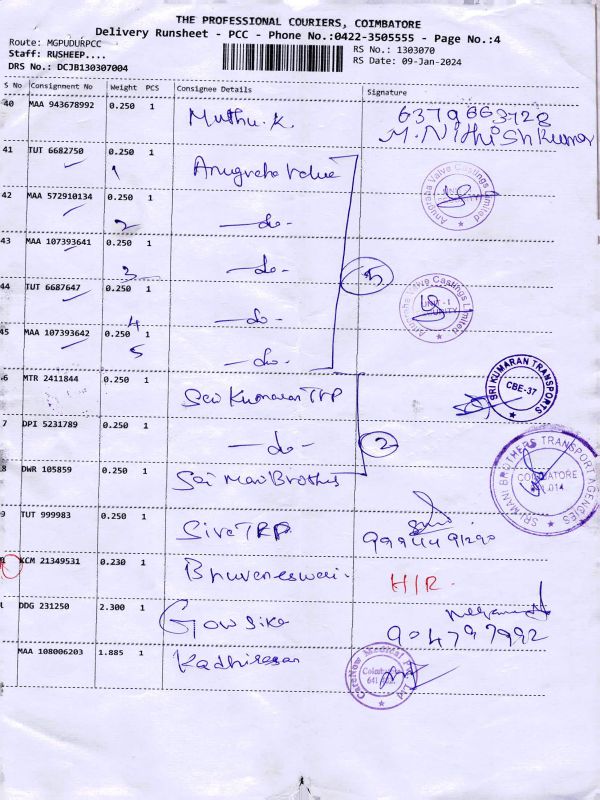 THE PROFESSIONAL COURIERS, COIMBATORE
Delivery Runsheet - PCC - Phone No.:0422-3505555 - Page No.:4
Route: MGPUDURPCC
Staff: RUSHEEP....
DRS No.: DCJB130307004
RS No.: 1303070
RS Date: 09-Jan-2024
S No Consignment No Weight PCS Consignee Details Signature
40 MAA 943678992 0.250 1 Muthu.K. 6379663728
M.Nithishkumar
41 TUT 6682750 0.250 1 Anugraha Valve
1
Anugraha Valve Castings Limited
42 MAA 572910134 0.250 1 -do-
2
43 MAA 107393641 0.250 1 -do-
3 5
44 TUT 6687647 0.250 1 -do-
4
Anugraha Valve Castings Limited
UNIT - 1
45 MAA 107393642 0.250 1 -do-
5
6 MTR 2411844 0.250 1 Sri Kumaran TRP
SRI KUMARAN TRANSPORTS
CBE-37
7 DPI 5231789 0.250 1 -do-
2
8 DWR 105859 0.250 1 Sri Mani Brothers
SRI MANI BROTHERS TRANSPORT AGENCIES
COIMBATORE
9 TUT 999983 0.250 1 Siva TRP
9994491290
KCM 21349531 0.230 1 Bhuvaneswari. H/R.
DDG 231250 2.300 1 Gowsika
904797992
MAA 108006203 1.885 1 Kadhiresan